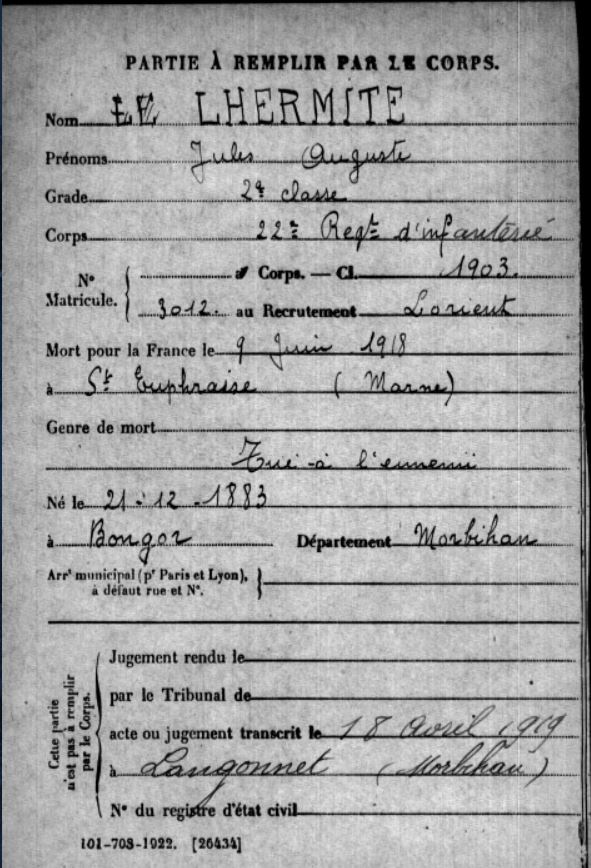 PARTIE À REMPLIR PAR LE CORPS.
Nom LHERMITE
Prénoms Jules Auguste
Grade 2e classe
Corps 22e Regt d'infanterie
No Matricule. { au Corps. — Cl. 1903.
3012. au Recrutement Lorient
Mort pour la France le 9 Juin 1918
à St Euphraise (Marne)
Genre de mort
Tué à l'ennemi
Né le 21-12-1883
à Département Morbihan
Arrt municipal (pr Paris et Lyon), à défaut rue et No. }
Cette partie n'est pas à remplir par le Corps.
Jugement rendu le
par le Tribunal de
acte ou jugement transcrit le 18 Avril 1919
à Langonnet (Morbihan)
No du registre d'état civil
101-708-1922. [26434]